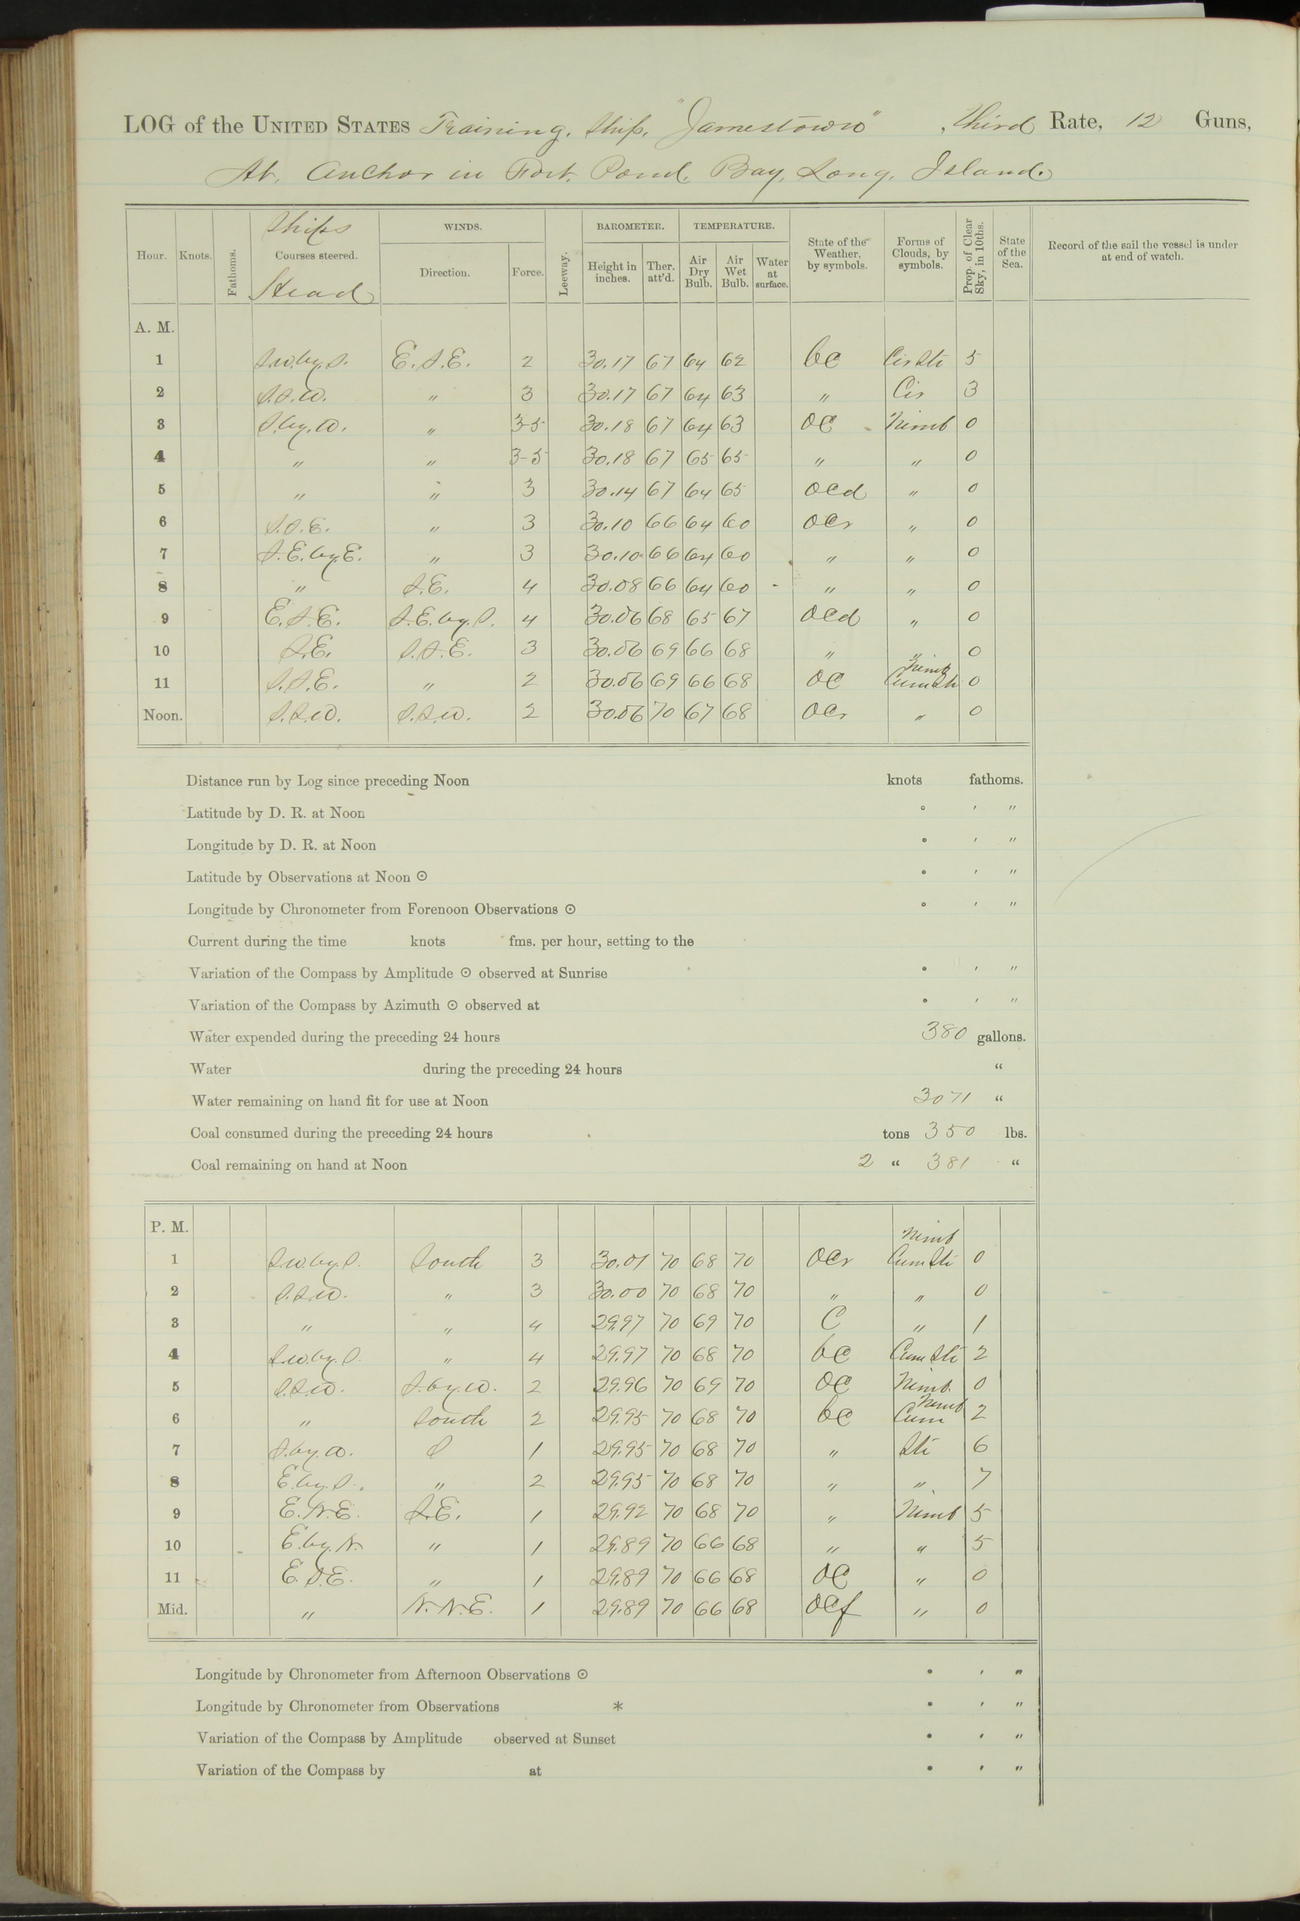 LOG of the UNITED STATES Training Ship "Jamestown", Third Rate, 12 Guns,
At Anchor in Fort Pond Bay, Long Island.
Hour. Knots. Fathoms. Ships Courses steered. Head WINDS. Direction. Force. Leeway. BAROMETER. Height in inches. Ther. att'd. TEMPERATURE. Air Dry Bulb. Air Wet Bulb. Water at surface. State of the Weather, by symbols. Forms of Clouds, by symbols. Prop. of Clear Sky, in 10ths. State of the Sea. Record of the sail the vessel is under at end of watch.
A. M.
1 S.W.by.S. E.S.E. 2 30.17 67 64 62 bc Cir Sti 5
2 S.S.W. " 3 30.17 67 64 63 " Cir 3
3 S.by.W. " 3-5 30.18 67 64 63 oc Nimb 0
4 " " 3-5 30.18 67 65 65 " " 0
5 " " 3 30.14 67 64 65 ocd " 0
6 S.S.E. " 3 30.10 66 64 60 ocr " 0
7 S.E.by.E. " 3 30.10 66 64 60 " " 0
8 " S.E. 4 30.08 66 64 60 " " 0
9 E.S.E. S.E.by.S. 4 30.06 68 65 67 ocd " 0
10 S.E. S.S.E. 3 30.06 69 66 68 " " 0
11 S.S.E. " 2 30.06 69 66 68 oc Nimb Cum Sti 0
Noon. S.S.W. S.S.W. 2 30.06 70 67 68 ocr " 0
Distance run by Log since preceding Noon knots fathoms.
Latitude by D. R. at Noon ° ' "
Longitude by D. R. at Noon ° ' "
Latitude by Observations at Noon ☉ ° ' "
Longitude by Chronometer from Forenoon Observations ☉ ° ' "
Current during the time knots fms. per hour, setting to the
Variation of the Compass by Amplitude ☉ observed at Sunrise ° ' "
Variation of the Compass by Azimuth ☉ observed at ° ' "
Water expended during the preceding 24 hours 380 gallons.
Water during the preceding 24 hours "
Water remaining on hand fit for use at Noon 3071 "
Coal consumed during the preceding 24 hours tons 350 lbs.
Coal remaining on hand at Noon 2 " 381 "
P. M.
1 S.W.by.S. South 3 30.01 70 68 70 ocr Nimb Cum Sti 0
2 S.S.W. " 3 30.00 70 68 70 " " 0
3 " " 4 29.97 70 69 70 C " 1
4 S.W.by.S. " 4 29.97 70 68 70 bc Cum Sti 2
5 S.S.W. S.by.W. 2 29.96 70 69 70 oc Nimb. 0
6 " South 2 29.95 70 68 70 bc Nimb Cum 2
7 S.by.W. S 1 29.95 70 68 70 " Sti 6
8 E.by.S. " 2 29.95 70 68 70 " " 7
9 E.N.E. S.E. 1 29.92 70 68 70 " Nimb 5
10 E.by.N. " 1 29.89 70 66 68 " " 5
11 E.S.E. " 1 29.89 70 66 68 oc " 0
Mid. " N.N.E. 1 29.89 70 66 68 ocf " 0
Longitude by Chronometer from Afternoon Observations ☉ ° ' "
Longitude by Chronometer from Observations * ° ' "
Variation of the Compass by Amplitude observed at Sunset ° ' "
Variation of the Compass by at ° ' "